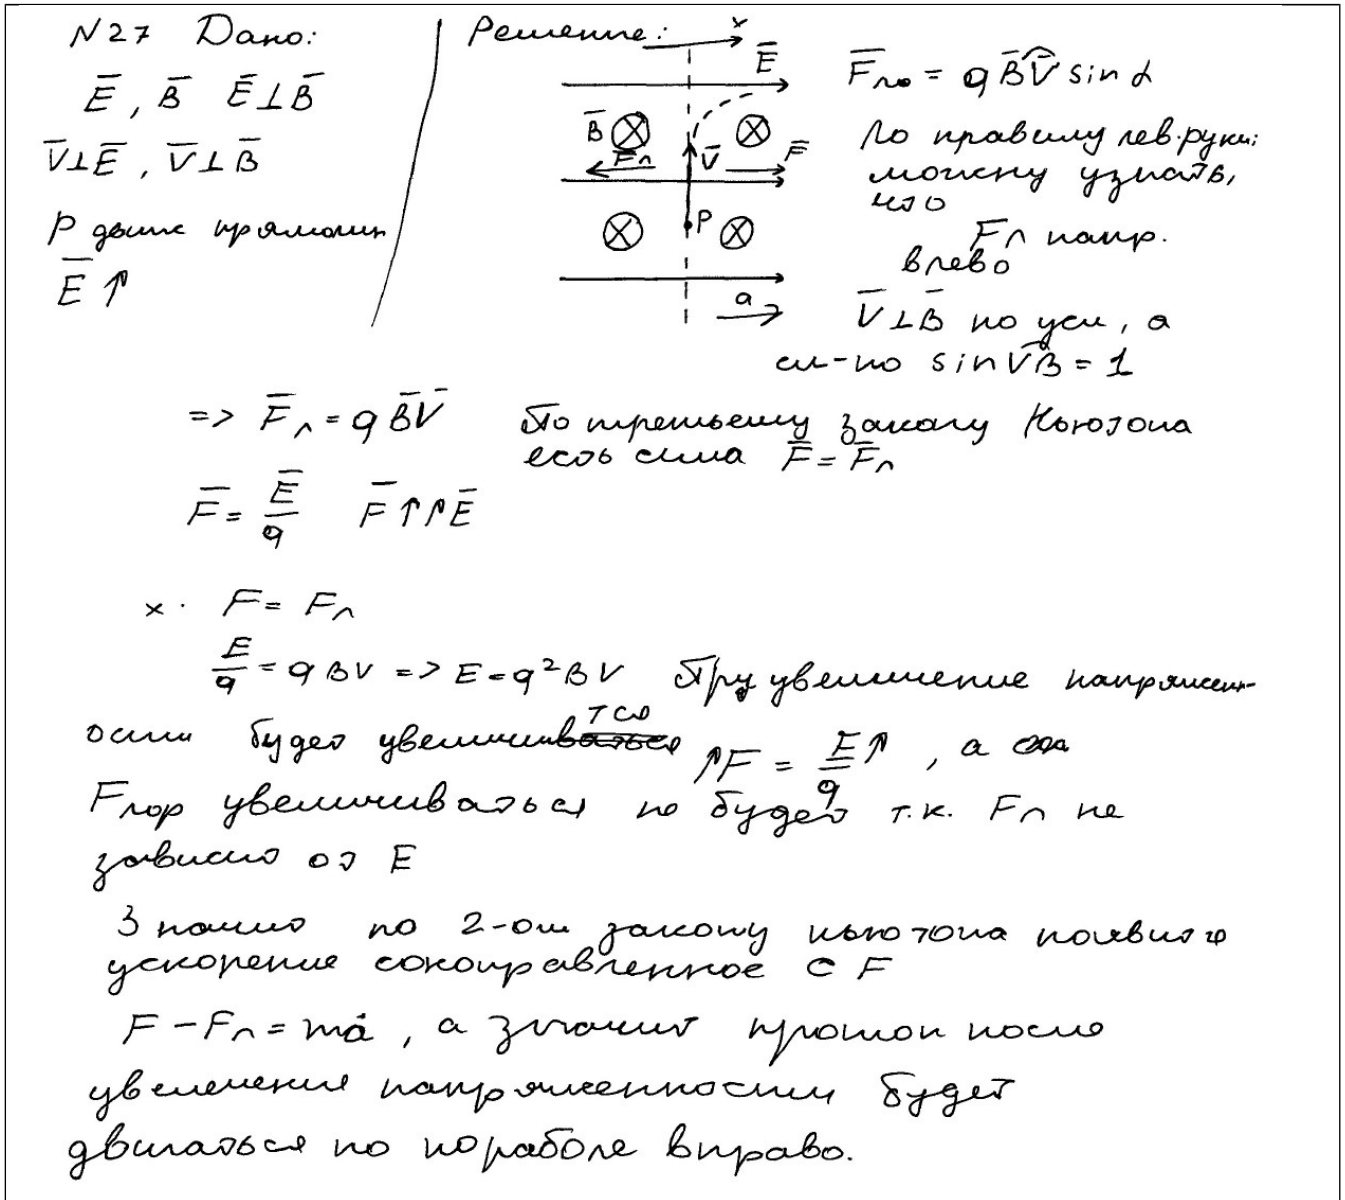 N27 Дано:
Ē, B̄ Ē⊥B̄
V̄⊥Ē, V̄⊥B̄
P движ прямолин
Ē↑
Решение:
x
Ē
B̄
F̄л
V̄
F̄
P
a
F̄ло = qB̄V̄ sin α
По правилу лев.руки:
можну узнать,
что
Fл напр.
влево
V̄⊥B̄ по усл, а
сл-но sin VB = 1
=> F̄л = qB̄V̄ По третьему закону Ньютона
есть сила F̄ = F̄л
F̄ = Ē/q F̄↑↑Ē
x. F = Fл
E/q = qBV => E = q²BV При увеличение напряжен-
ости будет увеличиваться ↑F = E↑/q, а
Fлор увеличиваться не будет т.к. Fл не
зависит от E
Значит по 2-ом закону ньютона появится
ускорение сонаправленное с F
F - Fл = ma, а значит протон после
увеличения напряженности будет
двигаться по пораболе вправо.